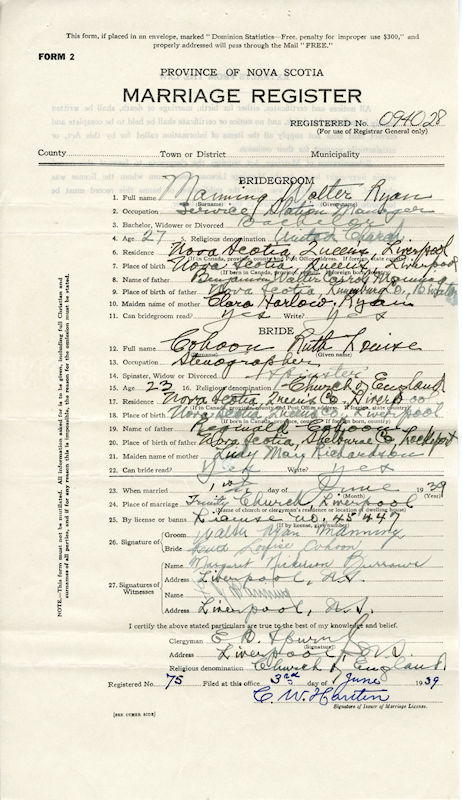 This form, if placed in an envelope, marked "Dominion Statistics—Free, penalty for improper use $300," and
properly addressed will pass through the Mail "FREE."
FORM 2
PROVINCE OF NOVA SCOTIA
MARRIAGE REGISTER
REGISTERED No. 094028
(For use of Registrar General only)
County Town or District Municipality
BRIDEGROOM
1. Full name Manning Walter Ryan
(Surname) (Given name)
2. Occupation Service Station Manager
3. Bachelor, Widower or Divorced Bachelor
4. Age 27 5. Religious denomination United Church
6. Residence Nova Scotia, Queens, Liverpool
(If in Canada, province, county and Post Office address. If foreign, state country)
7. Place of birth Nova Scotia, Queens, Liverpool
8. Name of father Benjamin Walter Carrol Manning
9. Place of birth of father Nova Scotia, Lunenburg Co.,
10. Maiden name of mother Clara Harlow Ryan
11. Can bridegroom read? Yes Write? Yes
BRIDE
12. Full name Cohoon Ruth Louise
(Surname) (Given name)
13. Occupation Stenographer
14. Spinster, Widow or Divorced Spinster
15. Age 23 16. Religious denomination Church of England
17. Residence Nova Scotia Queens Co. Liverpool
(If in Canada, province, county and Post Office address. If foreign, state country)
18. Place of birth Nova Scotia, Queens Co., Liverpool
19. Name of father Cohoon
20. Place of birth of father Nova Scotia, Shelburne Co., Lockeport
21. Maiden name of mother Mary Richardson
22. Can bride read? Yes Write? Yes
23. When married 1st day of June 1939
(Month) (Year)
24. Place of marriage Trinity Church Liverpool
(Name of church or clergyman's residence or location of dwelling house)
25. By license or banns License no. 45447
(If by license, give number)
26. Signature of
Groom Walter Ryan Manning
Bride Ruth Louise Cohoon
27. Signatures of Witnesses
Name Margaret Nickerson Burrows
Address Liverpool, N.S.
Name Manning
Address Liverpool, N.S.
I certify the above stated particulars are true to the best of my knowledge and belief.
Clergyman E. B. Spurr
(Signature)
Address Liverpool, N.S.
Religious denomination Church of England
Registered No. 75 Filed at this office 3rd day of June 1939
C. W. Harten
Signature of Issuer of Marriage License.
[SEE OTHER SIDE]
NOTE.—This form must not be mutilated. All information asked for is to be given, including full Christian and
surnames of all parties, and if for any reason this is impossible, the reason for the omission must be stated.